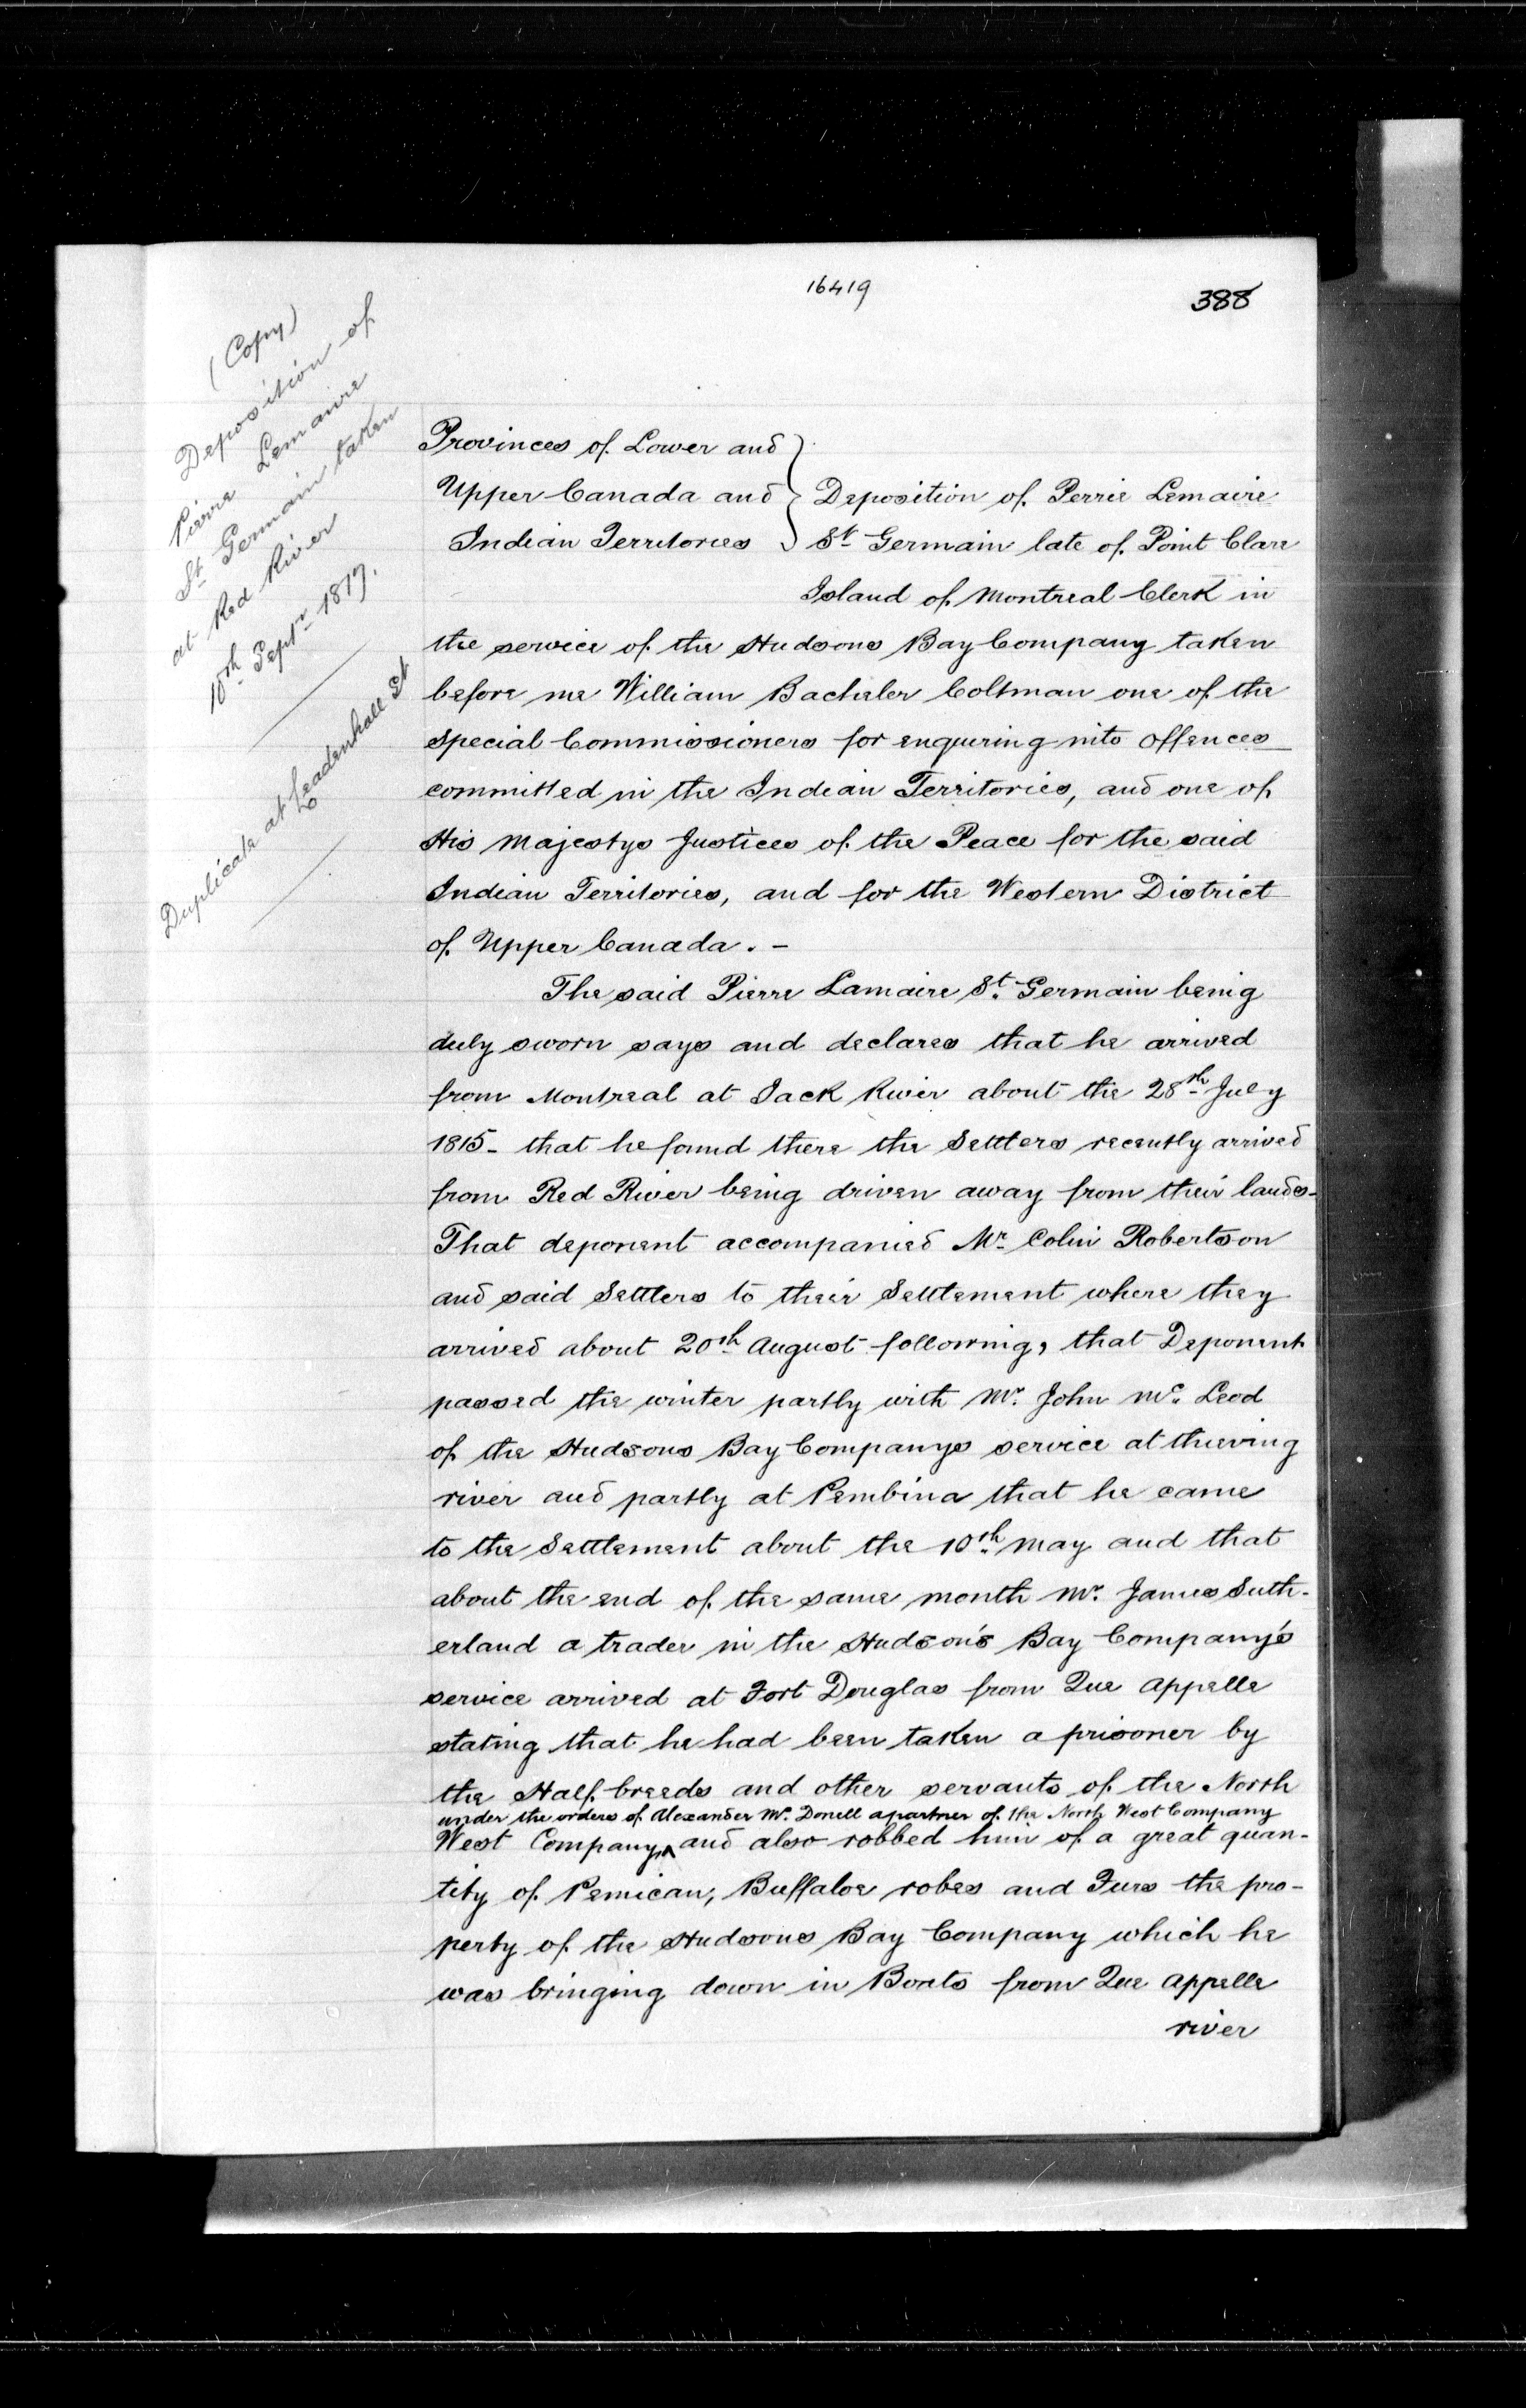 16419
388
(Copy)
Deposition of
Pierre Lemaire
St Germain taken
at Red River
10th Septr 1817.
Duplicate at Leadenhall St
Provinces of Lower and
Upper Canada and } Deposition of Perrie Lemaire
Indian Territories St Germain late of Point Clare
Island of Montreal Clerk in
the service of the Hudsons Bay Company taken
before me William Bacheler Coltman one of the
Special Commissioners for enquiring into offences
committed in the Indian Territories, and one of
His Majestys Justices of the Peace for the said
Indian Territories, and for the Western District
of Upper Canada. -
The said Pierre Lamaire St. Germain being
duly sworn says and declares that he arrived
from Montreal at Jack River about the 28th July
1815 - that he found there the Settlers recently arrived
from Red River being driven away from their lands -
That deponent accompanied Mr Colin Robertson
and said Settlers to their Settlement where they
arrived about 20th August following, that Deponent
passed the winter partly with Mr. John Mc. Leod
of the Hudsons Bay Companys service at thieving
river and partly at Pembina that he came
to the Settlement about the 10th May and that
about the end of the same month Mr. James Suth-
erland a trader in the Hudson's Bay Company's
service arrived at Fort Douglas from Que appelle
stating that he had been taken a prisoner by
the Half breeds and other servants of the North
under the orders of Alexander Mc. Donell a partner of the North West Company
West Company, ^ and also robbed him of a great quan-
tity of Pemican, Buffaloe robes and Furs the pro-
perty of the Hudsons Bay Company which he
was bringing down in Boats from Que appelle
river